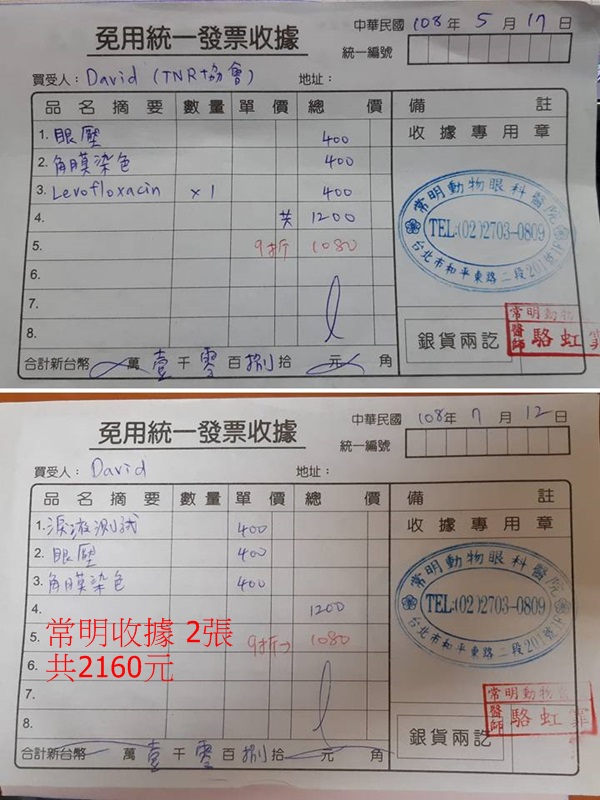 免用統一發票收據
中華民國 108年 5月 17日
統一編號
買受人：David (TNR協會) 地址：
品名摘要 數量 單價 總價 備註
1. 眼壓 400 收據專用章
2. 角膜染色 400
3. Levofloxacin x1 400
4. 共 1200
5. 9折 1080
6.
7.
8.
常明動物眼科醫院
TEL:(02)2703-0809
台北市和平東路二段
銀貨兩訖
常明動物
醫師 駱虹
合計新台幣 萬 壹千 零百 捌拾 元 角
免用統一發票收據
中華民國 108年 7月 12日
統一編號
買受人：David 地址：
品名摘要 數量 單價 總價 備註
1. 淚液測試 400 收據專用章
2. 眼壓 400
3. 角膜染色 400
4. 1200
5. 9折 1080
6.
7.
8.
常明收據 2張
共2160元
常明動物眼科醫院
TEL:(02)2703-0809
台北市和平東路二段
銀貨兩訖
常明動物
醫師 駱虹
合計新台幣 萬 壹千 零百 捌拾 元 角